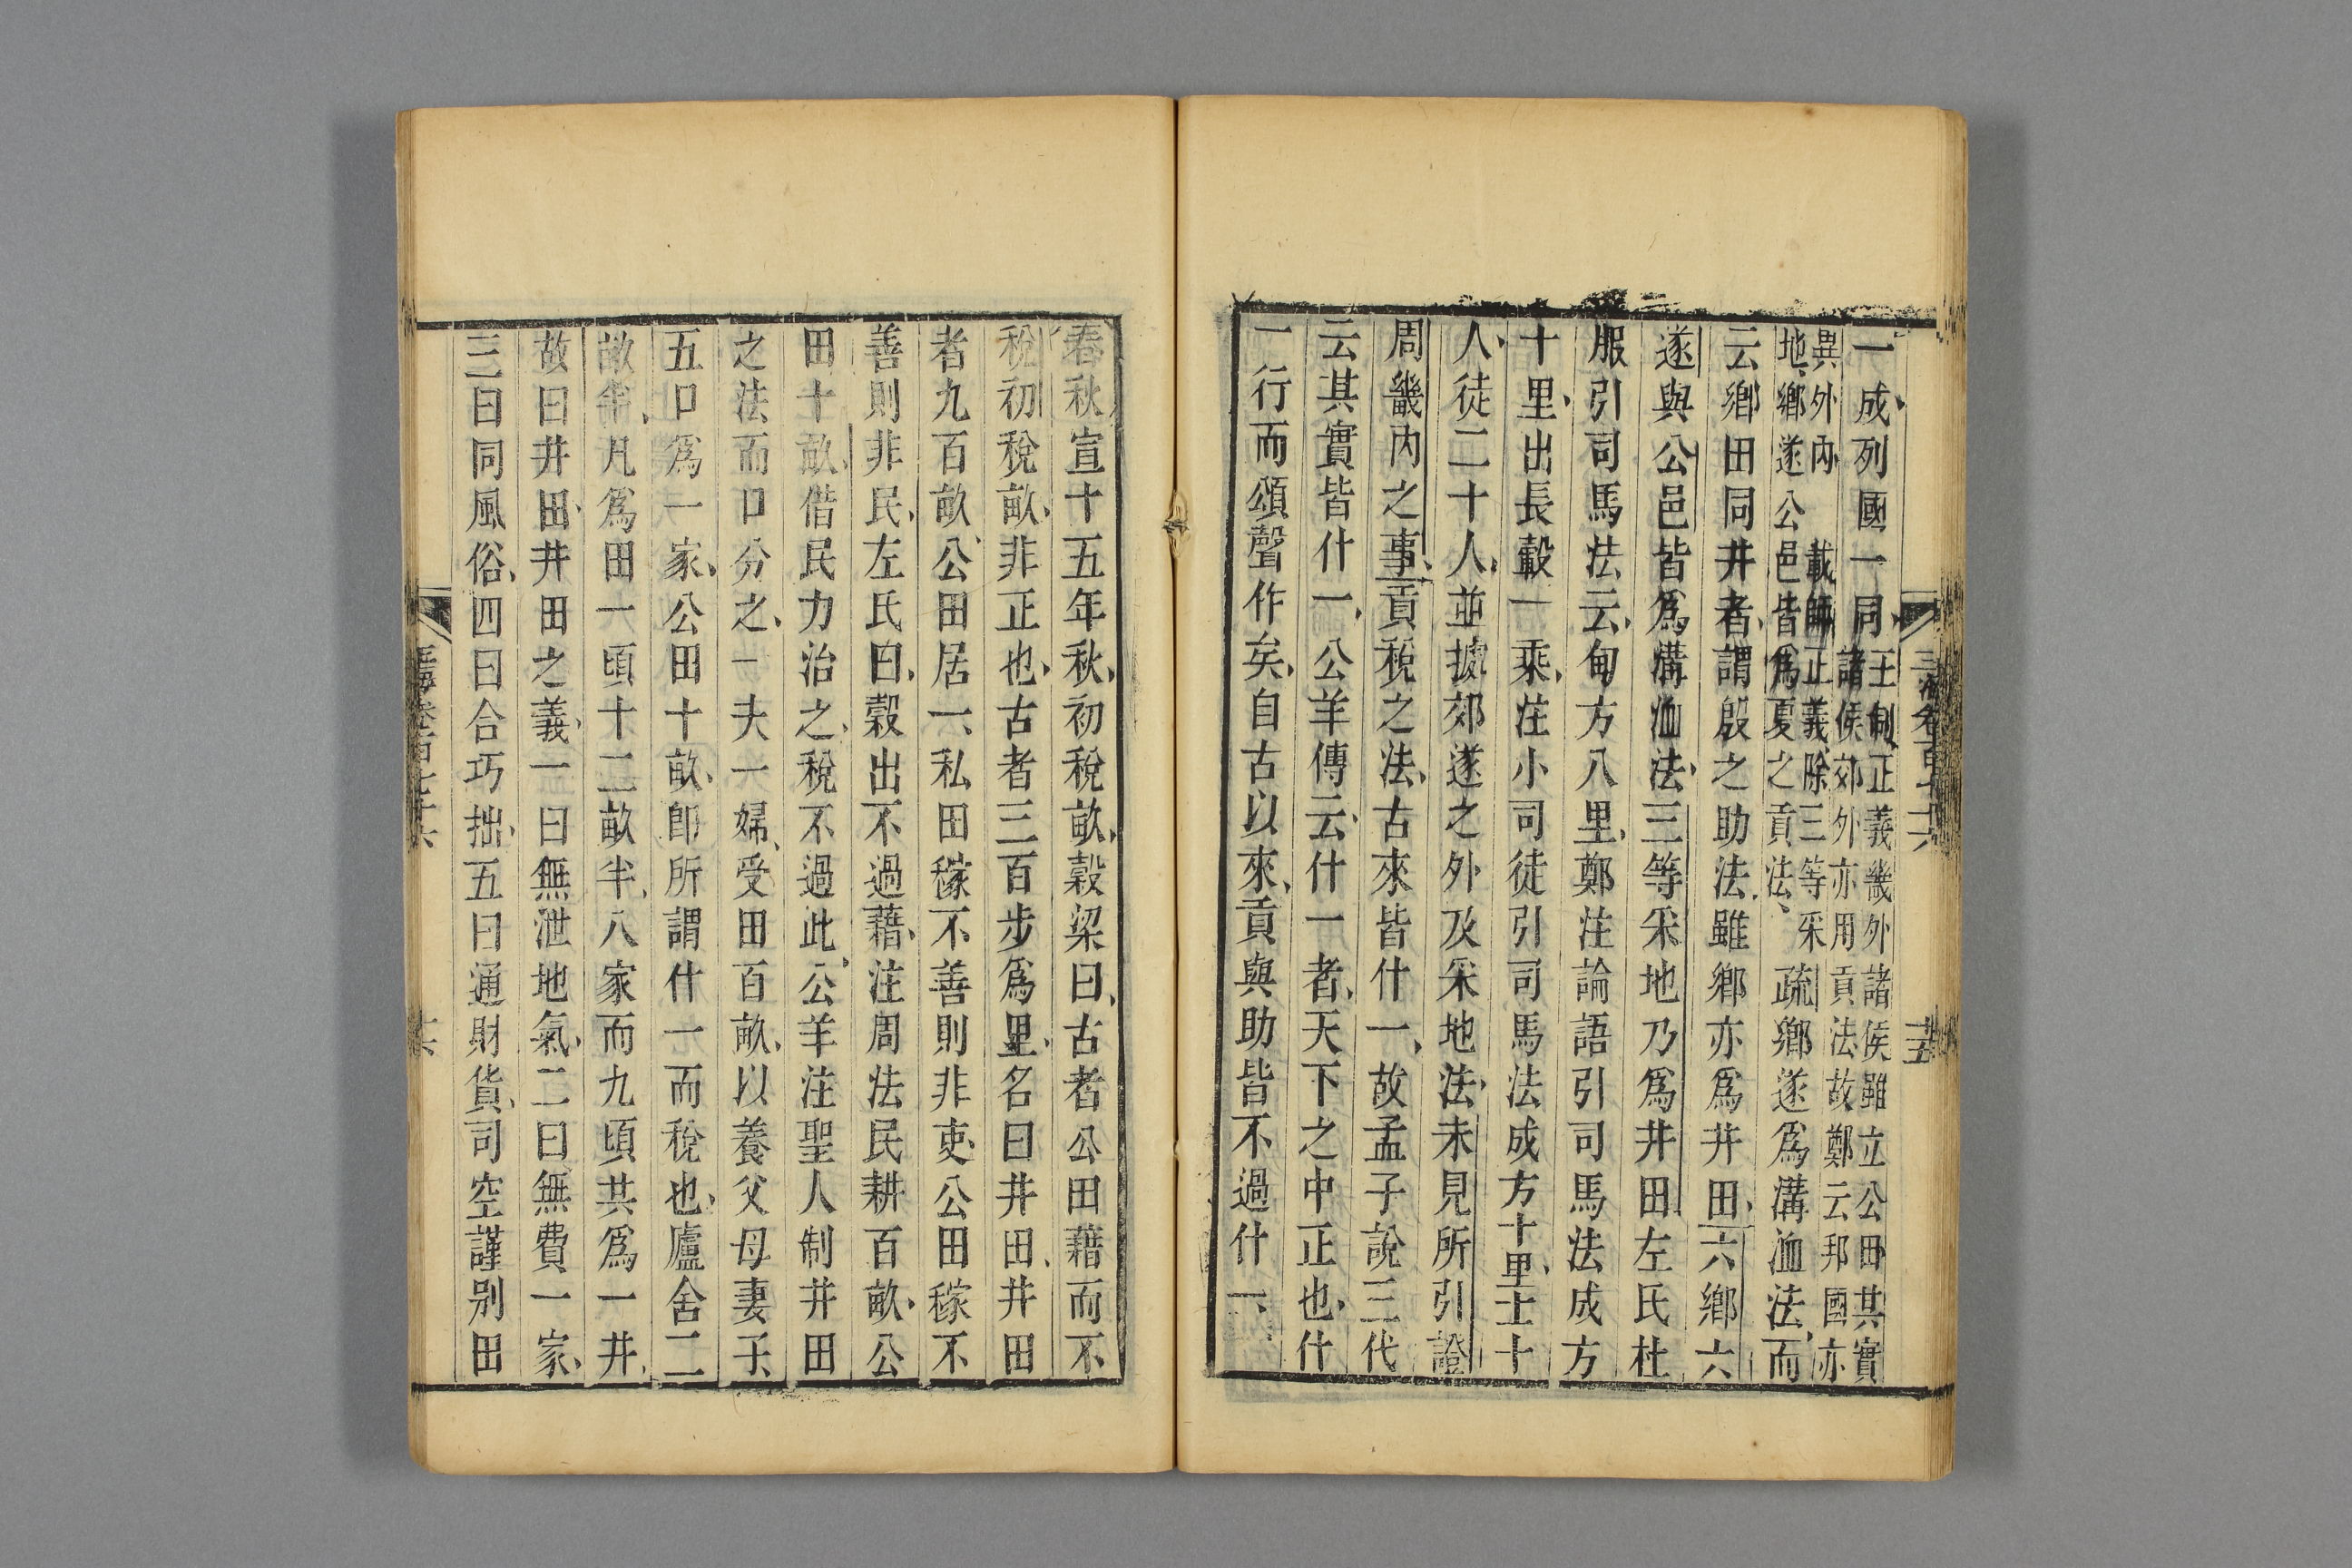 玉海卷一百七十六
十五
一成列國一同王制正義畿外諸侯雖立公田其實
諸侯郊外亦用貢法故鄭云邦國亦
異外內 載師正義除三等采
地鄉遂公邑皆爲夏之貢法 疏鄉遂爲溝洫法而
云鄉田同井者謂殷之助法雖鄉亦爲井田六鄉六
遂與公邑皆爲溝洫法三等采地乃爲井田左氏杜
服引司馬法云甸方八里鄭注論語引司馬法成方
十里出長轂一乘注小司徒引司馬法成方十里士十
人徒二十人並據郊遂之外及采地法未見所引證
周畿內之事貢稅之法古來皆什一故孟子說三代
云其實皆什一公羊傳云什一者天下之中正也什
一行而頌聲作矣自古以來貢與助皆不過什一
春秋宣十五年秋初稅畝穀梁曰古者公田藉而不
稅初稅畝非正也古者三百步爲里名曰井田井田
者九百畝公田居一私田稼不善則非吏公田稼不
善則非民左氏曰穀出不過藉注周法民耕百畝公
田十畝借民力治之稅不過此公羊注聖人制井田
之法而口分之一夫一婦受田百畝以養父母妻子
五口爲一家公田十畝卽所謂什一而稅也廬舍二
畝半凡爲田一頃十二畝半八家而九頃共爲一井
故曰井田井田之義一曰無泄地氣二曰無費一家
三曰同風俗四曰合巧拙五曰通財貨司空謹别田
玉海卷百七十六
十六